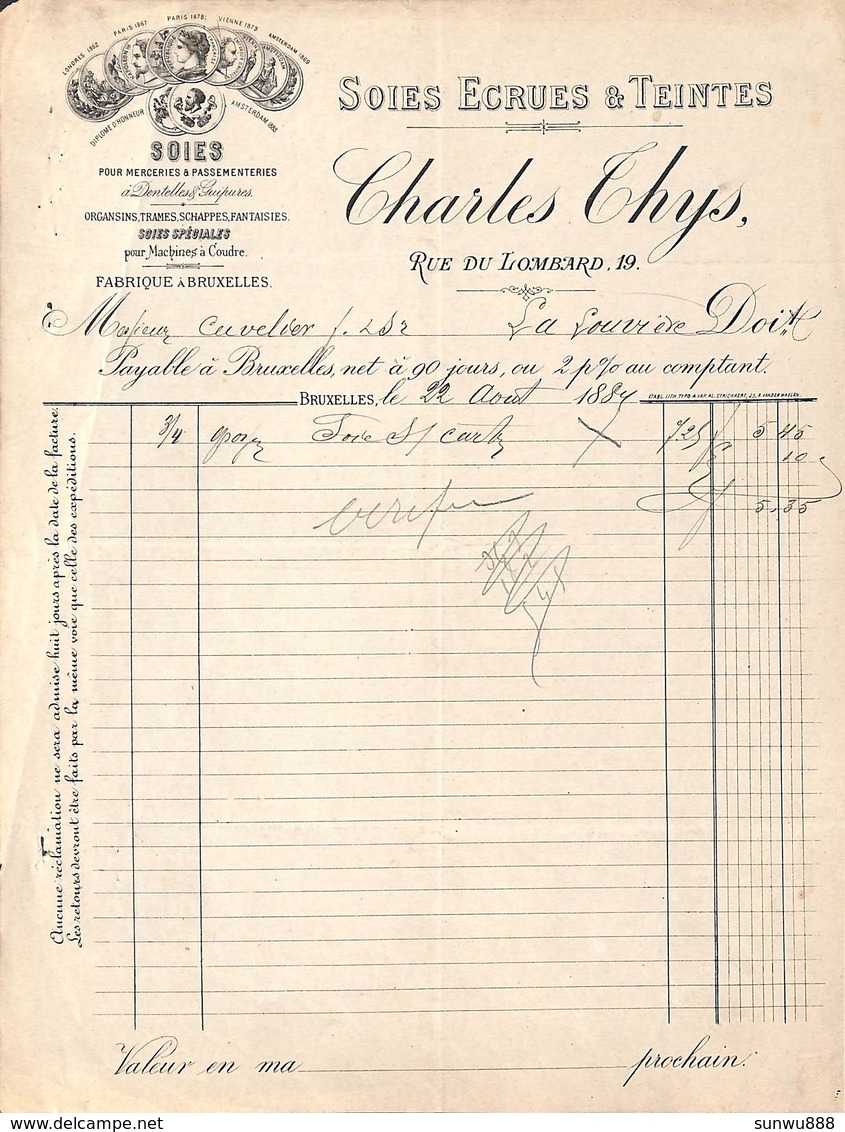 LONDRES 1862 PARIS 1867 PARIS 1878 VIENNE 1873 AMSTERDAM 1869
DIPLOME D'HONNEUR AMSTERDAM 1883
SOIES
POUR MERCERIES & PASSEMENTERIES
à Dentelles & Guipures.
ORGANSINS, TRAMES, SCHAPPES, FANTAISIES.
SOIES SPÉCIALES
pour Machines à Coudre.
FABRIQUE À BRUXELLES.
SOIES ECRUES & TEINTES
Charles Thys,
RUE DU LOMBARD, 19.
Monsieur Cuvelier La Louvière Doit
Payable à Bruxelles, net à 90 jours, ou 2 p% au comptant.
BRUXELLES, le 22 Août 1884
3/4 Soie S/ carte 725 5 45
10
5.35
Aucune réclamation ne sera admise huit jours après la date de la facture.
Les retours devront être faits par la même voie que celle des expéditions.
Valeur en ma prochain.
delcampe.net
sunwu888